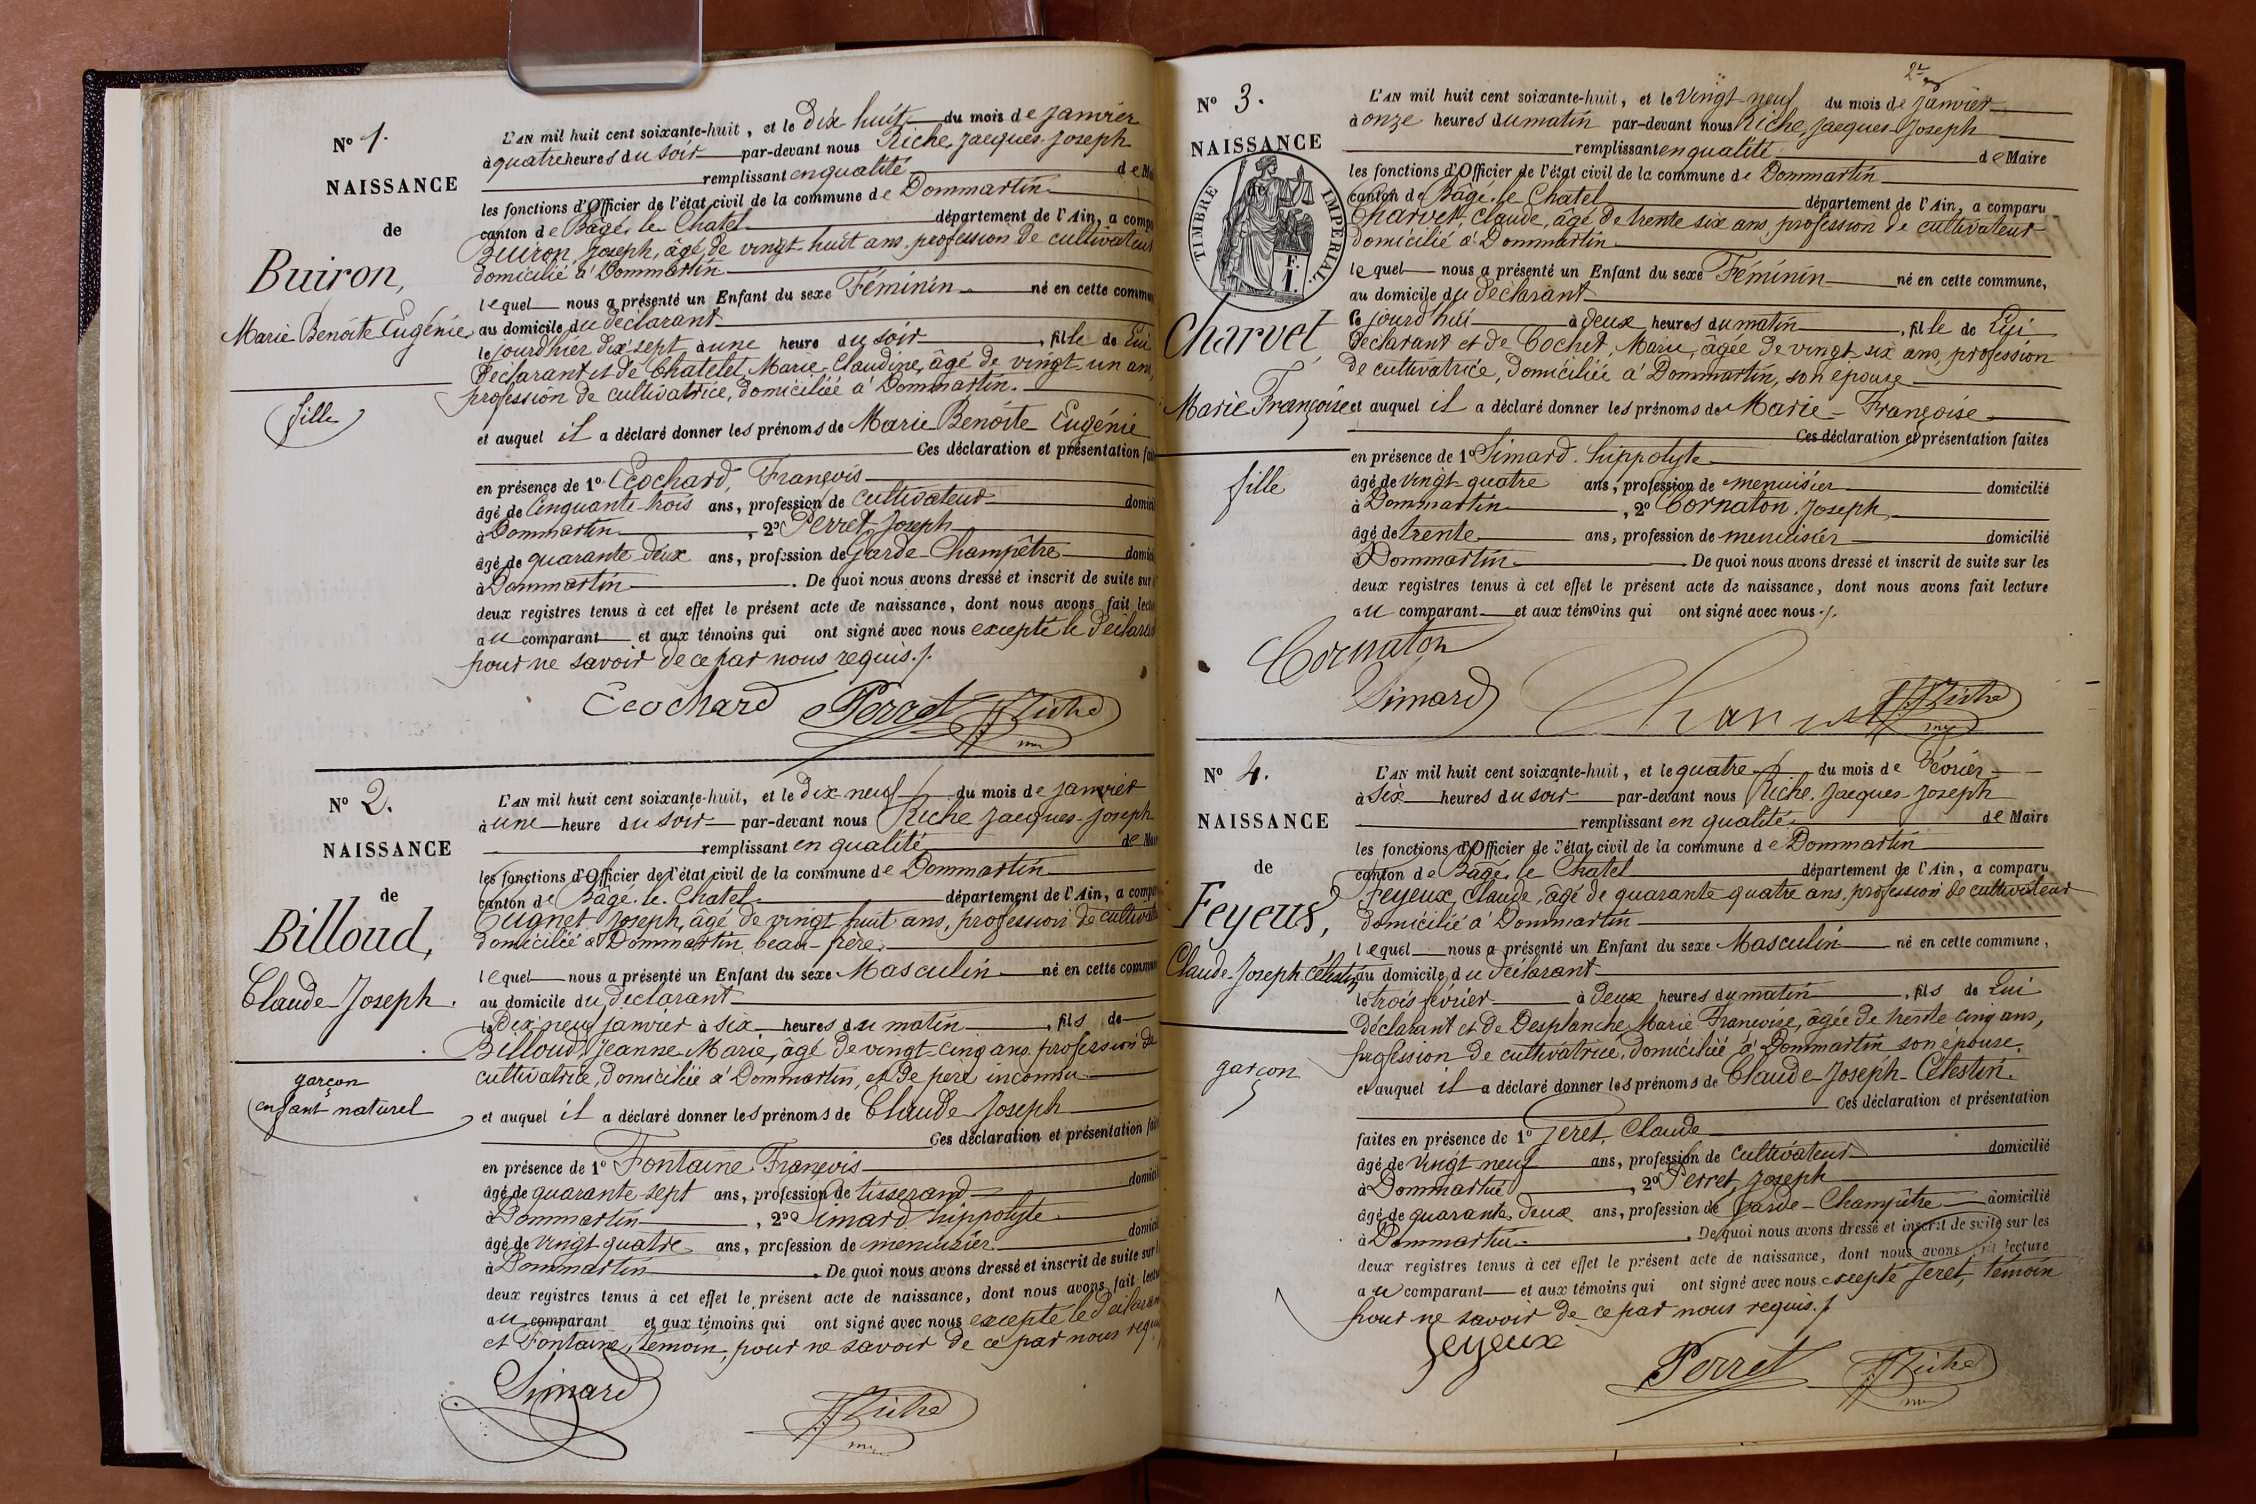 N° 1.
NAISSANCE
de
Buiron,
Marie Benoîte Eugénie
fille
L'AN mil huit cent soixante-huit, et le Dix huit du mois de Janvier
à quatre heures du soir par-devant nous Riche, Jacques-Joseph
remplissant en qualité de
les fonctions d'Officier de l'état civil de la commune de Dommartin
canton de Bâgé-le-Chatel département de l'Ain, a
Buiron, Joseph, âgé de vingt-huit ans, profession de cultivateur
domicilié à Dommartin
lequel nous a présenté un Enfant du sexe Féminin né en cette
au domicile du déclarant
le jourd'hier dix sept, à une heure du soir, fille de Lui
déclarant et de Chatelet, Marie-Claudine, âgé de vingt-un ans,
profession de cultivatrice, domiciliée à Dommartin.
et auquel il a déclaré donner les prénoms de Marie Benoîte Eugénie
Ces déclaration et présentation
en présence de 1° Ecochard, François
âgé de Cinquante-trois ans, profession de cultivateur
à Dommartin, 2° Perret, Joseph
âgé de quarante deux ans, profession de Garde-Champêtre
à Dommartin. De quoi nous avons dressé et inscrit de suite sur
deux registres tenus à cet effet le présent acte de naissance, dont nous avons fait
au comparant et aux témoins qui ont signé avec nous excepté le
pour ne savoir de ce par nous requis./.
Ecochard Perret Riche
N° 2.
NAISSANCE
de
Billoud,
Claude-Joseph.
garçon
enfant naturel
L'AN mil huit cent soixante-huit, et le Dix-neuf du mois de Janvier
à une heure du soir par-devant nous Riche Jacques-Joseph
remplissant en qualité de
les fonctions d'Officier de l'état civil de la commune de Dommartin
canton de Bâgé-le-Chatel département de l'Ain, a
Cugnet Joseph, âgé de vingt huit ans, profession de
domiciliée à Dommartin, beau-frère,
lequel nous a présenté un Enfant du sexe Masculin né en cette
au domicile du déclarant
le Dix neuf janvier à six heures du matin, fils de
Billoud, Jeanne-Marie, âgé de vingt-cinq ans profession de
cultivatrice, domiciliée à Dommartin, et de père inconnu
et auquel il a déclaré donner les prénoms de Claude-Joseph
Ces déclaration et présentation
en présence de 1° Fontaine François
âgé de quarante-sept ans, profession de tisserand
à Dommartin, 2° Simard hippolyte
âgé de vingt-quatre ans, profession de menuisier
à Dommartin. De quoi nous avons dressé et inscrit de suite sur
deux registres tenus à cet effet le présent acte de naissance, dont nous avons fait
au comparant et aux témoins qui ont signé avec nous excepté le
et Fontaine, témoin, pour ne savoir de ce par nous
Simard Riche
N° 3.
NAISSANCE
de
TIMBRE IMPERIAL.
F.
1.
Charvet
Marie Françoise
fille
L'AN mil huit cent soixante-huit, et le Vingt-neuf du mois de Janvier
à onze heures du matin par-devant nous Riche, Jacques-Joseph
remplissant en qualité de Maire
les fonctions d'Officier de l'état civil de la commune de Dommartin
canton de Bâgé-le-Chatel département de l'Ain, a comparu
Charvet, Claude, âgé de trente six ans, profession de cultivateur
domicilié à Dommartin
lequel nous a présenté un Enfant du sexe Féminin né en cette commune,
au domicile du déclarant
ce jourd'hui à deux heures du matin, fille de Lui
déclarant et de Cochet, Marie, âgée de vingt-six ans, profession
de cultivatrice, domiciliée à Dommartin, son épouse
et auquel il a déclaré donner les prénoms de Marie-Françoise
Ces déclaration et présentation faites
en présence de 1° Simard hippolyte
âgé de vingt-quatre ans, profession de menuisier domicilié
à Dommartin, 2° Cornaton, Joseph,
âgé de trente ans, profession de menuisier domicilié
à Dommartin. De quoi nous avons dressé et inscrit de suite sur les
deux registres tenus à cet effet le présent acte de naissance, dont nous avons fait lecture
au comparant et aux témoins qui ont signé avec nous./.
Cornaton
Simard Charvet Riche
N° 4.
NAISSANCE
de
Feyeux,
Claude-Joseph-Célestin
garçon
L'AN mil huit cent soixante-huit, et le quatre du mois de Février
à Six heures du soir par-devant nous Riche, Jacques-Joseph
remplissant en qualité de Maire
les fonctions d'Officier de l'état civil de la commune de Dommartin
canton de Bâgé-le-Chatel département de l'Ain, a comparu
Feyeux, Claude, âgé de quarante quatre ans, profession de cultivateur
domicilié à Dommartin
lequel nous a présenté un Enfant du sexe Masculin né en cette commune,
au domicile du déclarant
le trois février à deux heures du matin, fils de Lui
déclarant et de Desplanche, Marie Françoise, âgée de trente cinq ans,
profession de cultivatrice, domiciliée à Dommartin son épouse.
et auquel il a déclaré donner les prénoms de Claude-Joseph-Célestin.
Ces déclaration et présentation
faites en présence de 1° Jeret, Claude
âgé de vingt neuf ans, profession de cultivateur domicilié
à Dommartin, 2° Perret, Joseph
âgé de quarante deux ans, profession de Garde-Champêtre domicilié
à Dommartin. De quoi nous avons dressé et inscrit de suite sur les
deux registres tenus à cet effet le présent acte de naissance, dont nous avons fait lecture
au comparant et aux témoins qui ont signé avec nous excepté Jeret, témoin
pour ne savoir de ce par nous requis./.
feyeux
Perret Riche